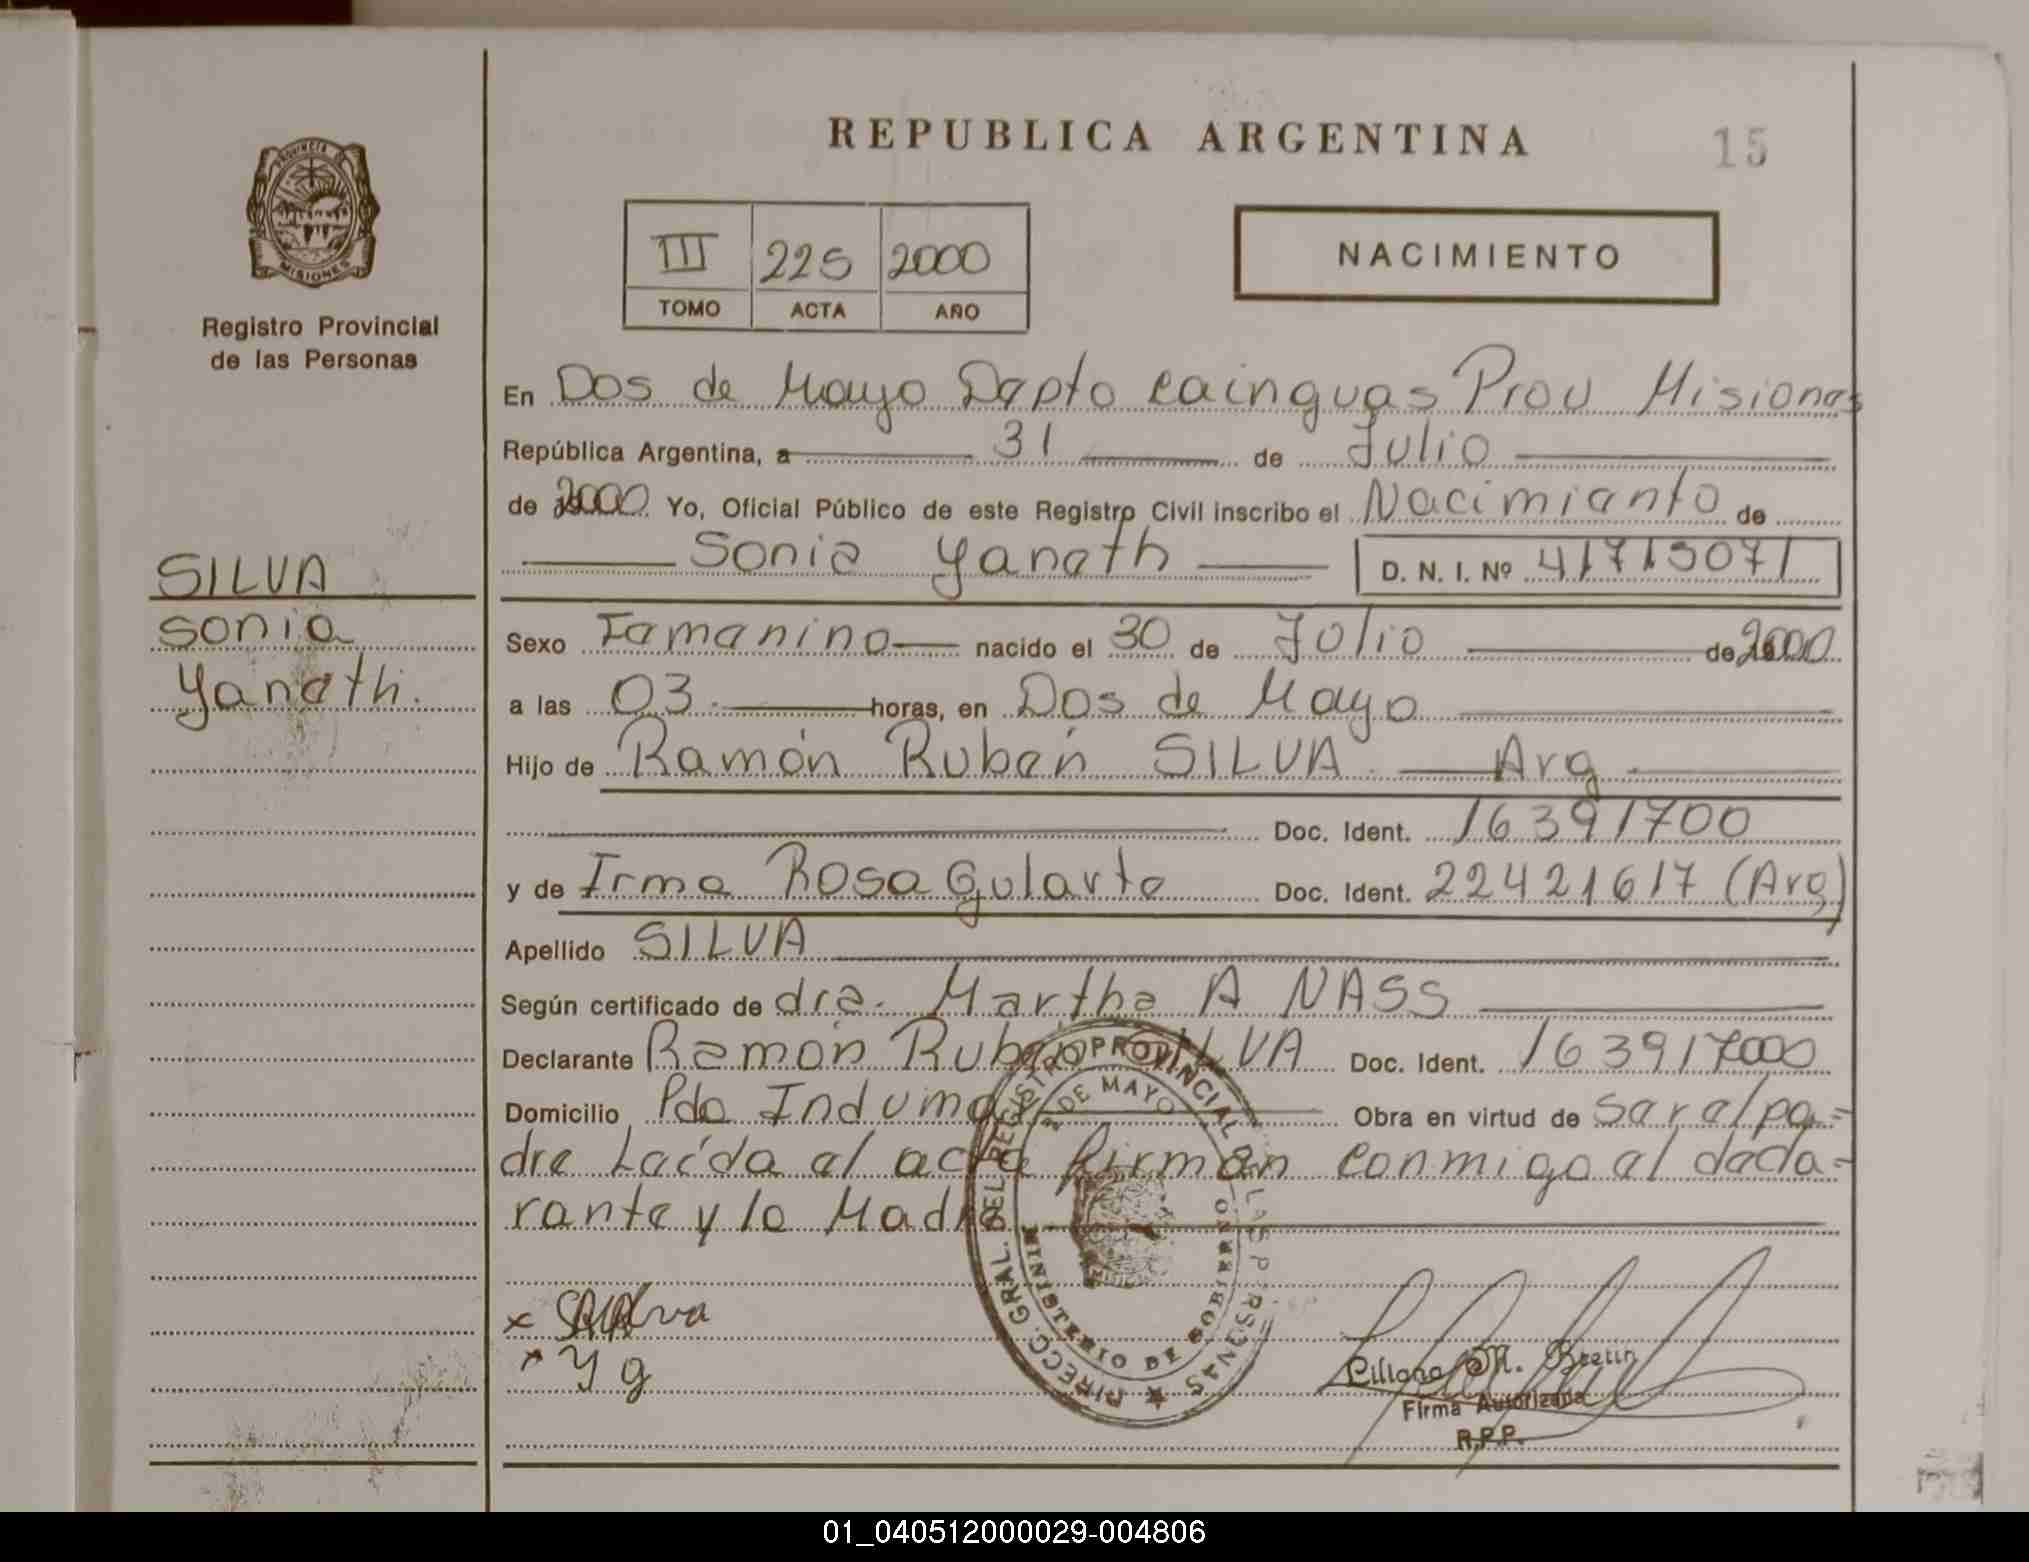 REPUBLICA ARGENTINA
15
PROVINCIA DE
MISIONES
Registro Provincial
de las Personas
III 225 2000
TOMO ACTA AÑO
NACIMIENTO
En Dos de Mayo Depto Cainguas Prov Misiones
República Argentina, a 31 de Julio
de 2000 Yo, Oficial Público de este Registro Civil inscribo el Nacimiento de
Sonia Yaneth D. N. I. Nº 41713071
SILVA
Sonia
Yaneth.
Sexo Femenino nacido el 30 de Julio de 2000
a las 03. horas, en Dos de Mayo
Hijo de Ramón Rubén SILVA. Arg
Doc. Ident. 16391700
y de Irma Rosa Gularte Doc. Ident. 22421617 (Arg)
Apellido SILVA
Según certificado de dra. Martha A NASS
Declarante Ramón Rubén SILVA Doc. Ident. 16391700
Domicilio Pdo Indumar Obra en virtud de ser el pa=
dre Leída el acta firman conmigo el decla=
rante y la Madre
DIRECC. GRAL. DEL REGISTRO PROVINCIAL DE LAS PERSONAS
2 DE MAYO
MINISTERIO DE GOBIERNO
x Silva
x Y g
Liliana M. Bretin
Firma Autorizada
R.P.P.
01_040512000029-004806